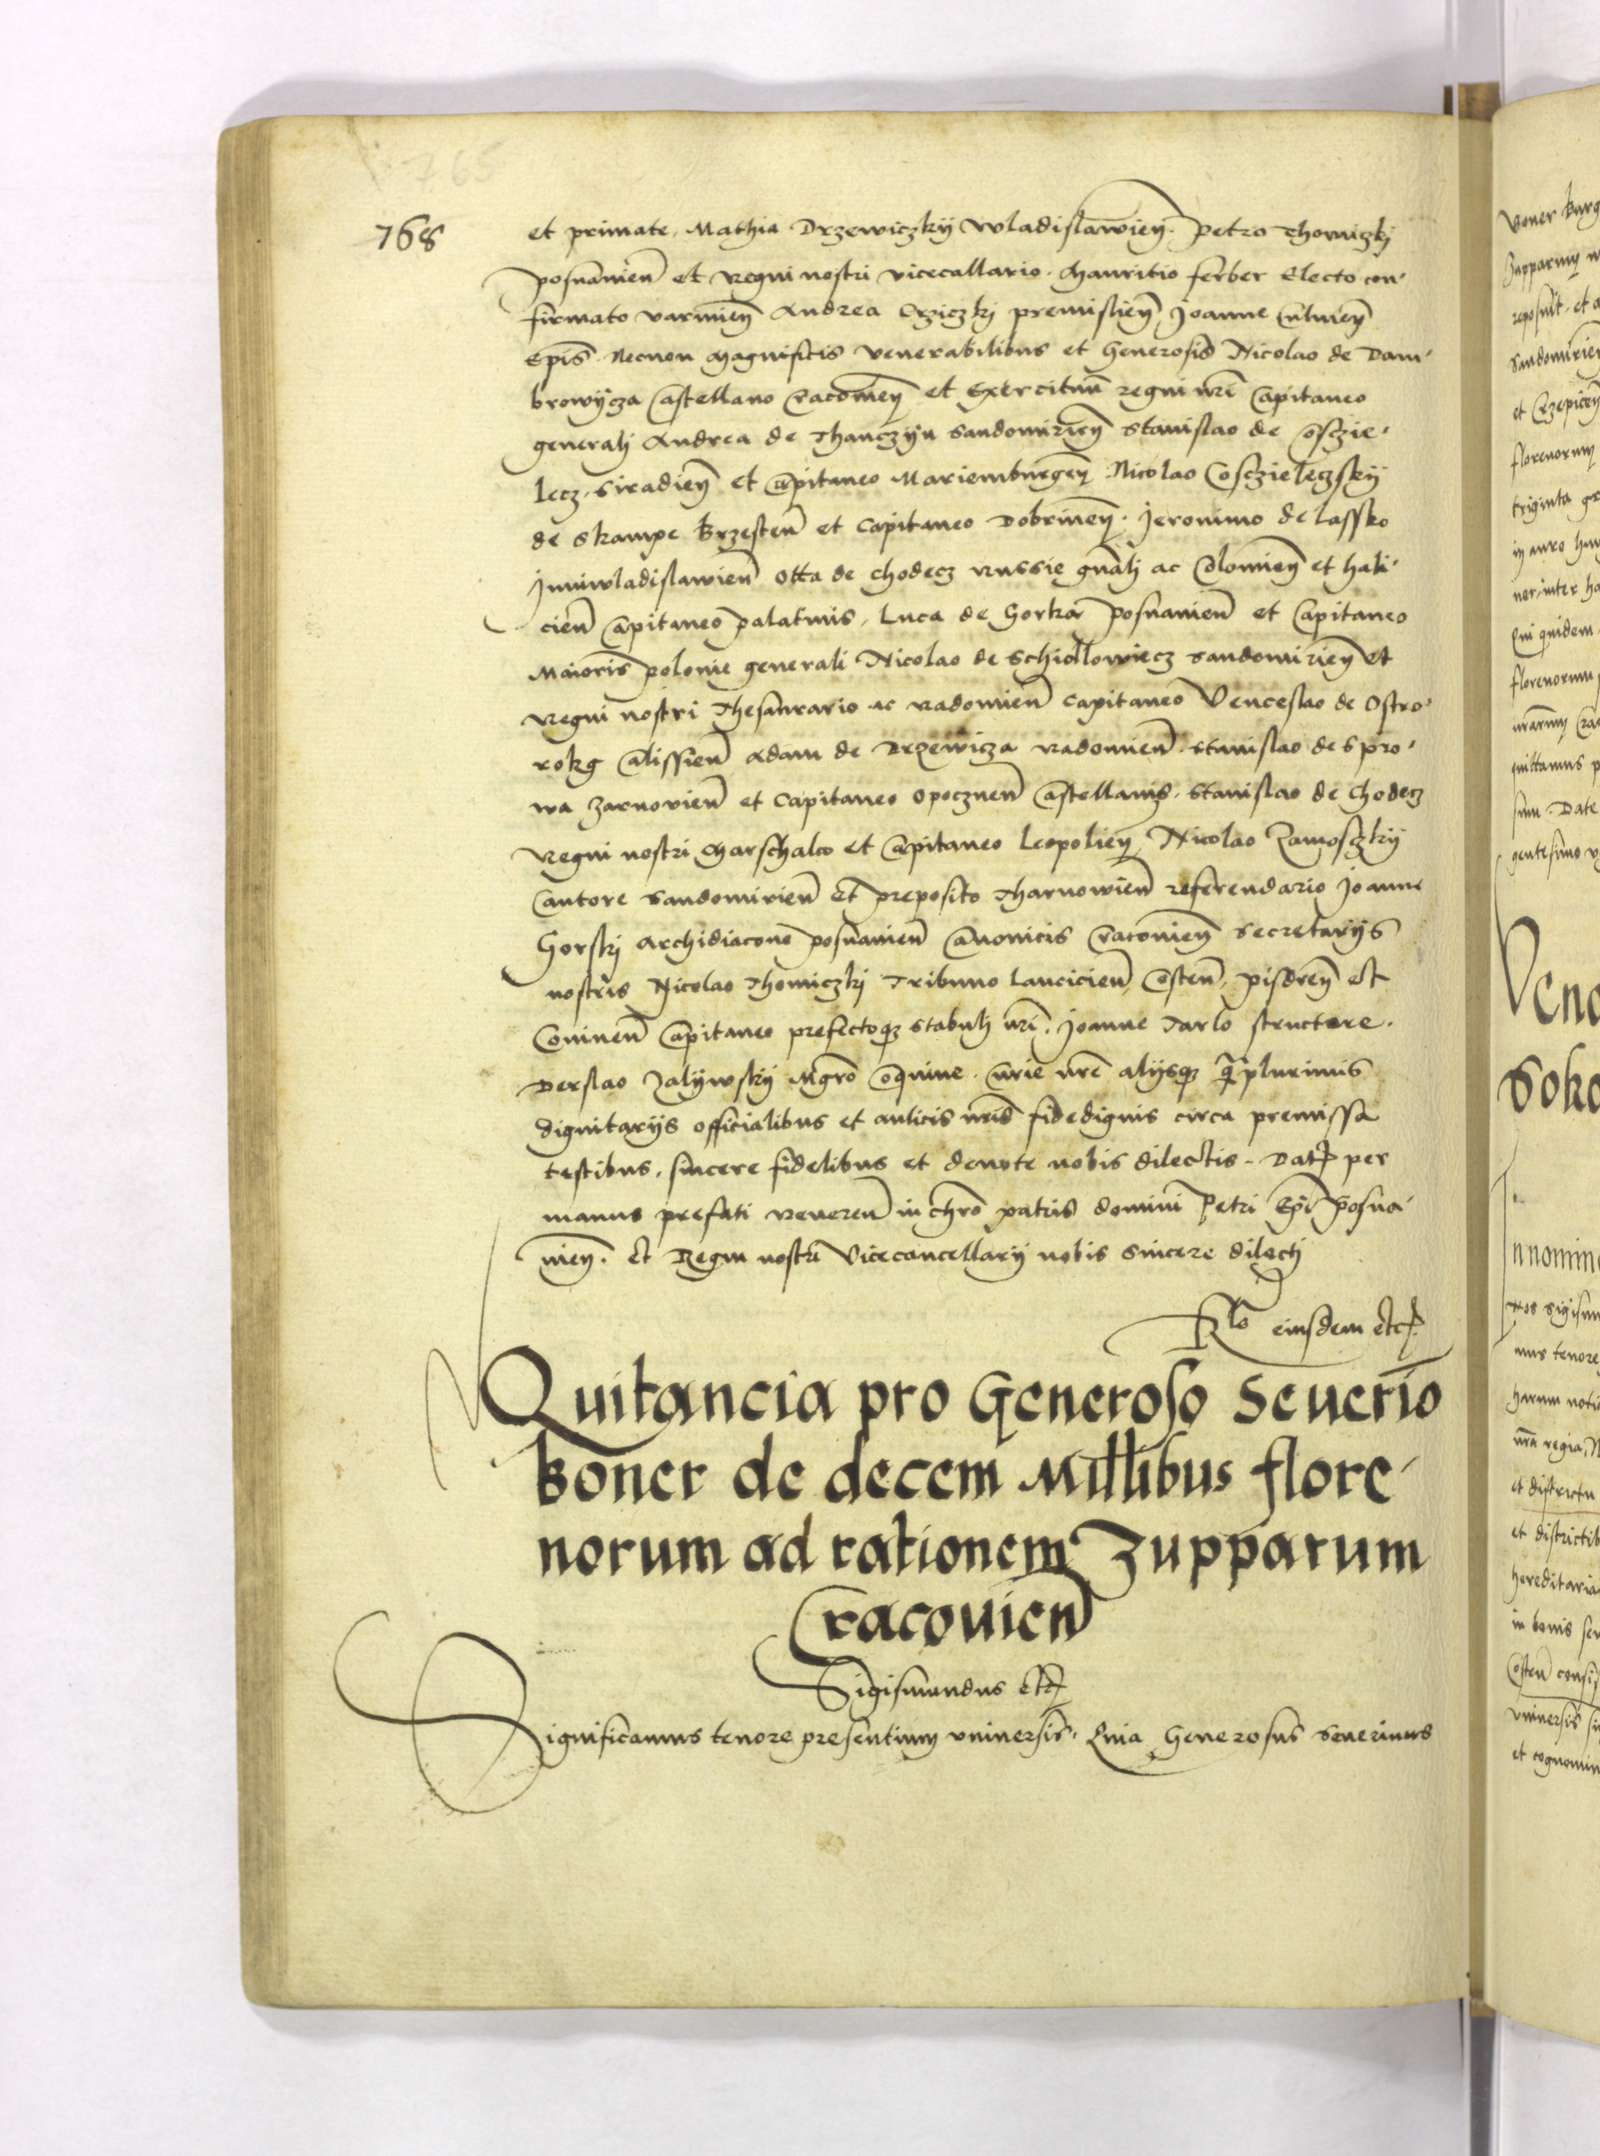 765
768
et primate, Mathia Drzewiczkij Wladislawień. Petro Thomiczkj
posnanień et Regni nostri vicecallario. Mauritio ferber Electo con-
firmato varmień Andrea Crziczkj premislień Joanne Culmeń
Epis. Necnon Magnificis venerabilibus et Generosis Nicolao de Dam-
browijcza Castellano Cracovień et Exercituu regni nri Capitaneo
generalj Andrea de Thanczijn Sandomirień Stanislao de Cosczie-
lecz. Siradień et Capitaneo Mariemburgeń Nicolao Cosczieleczskij
de Skampe Brzesteń et Capitaneo Dobrineń. Jeronimo de Lassko
Juniwladislawień Otta de Chodecz Russie gnalj ac Colomień et hali-
cień Capitaneo palatinis, Luca de Gorka Posnanień et Capitaneo
Maioris polonie generali Nicolao de Schidlowiecz Sandomirień et
Regni nostri Thesaurario ac Radomień Capitaneo Venceslao de Ostro-
rokg Calissień Adam de Drzewicza Radomień. Stanislao de Spro-
wa Zarnovień et Capitaneo Opoczneń Castellanis. Stanislao de Chodecz
Regni nostri Marschalco et Capitaneo Leopolień, Nicolao Zamosczkij
Cantore Sandomirień et preposito Tharnowień referendario Joanne
Gorskj Archidiacono posnanień Canonicis Cracovień Secretarijs
nostris Nicolao Thomiczkj Tribuno Lancicień, Costeń, Pisdreń et
Covineń Capitaneo prefectoqz stabulj nri. Joanne Tarlo structore.
Derslao Zalijwskij Mgro Coquine. Curie nre alijsqz qplurimis
dignitarijs officialibus et aulicis nris fidedignis circa premissa
testibus, sincere fidelibus et devote nobis dilectis. Dat per
manus prefati Reveren in chro patris domini Petri Epi Posna-
nień. et Regni nostri Vicecancellarij nobis sincere dilectj
Rlo eiusdem etc.
Quitancia pro Generoso Severio
Boner de decem Millibus flore-
norum ad rationem Zupparum
Cracovień
Sigismundus etc
Significamus tenore presentium universis. Quia Generosus Severinus